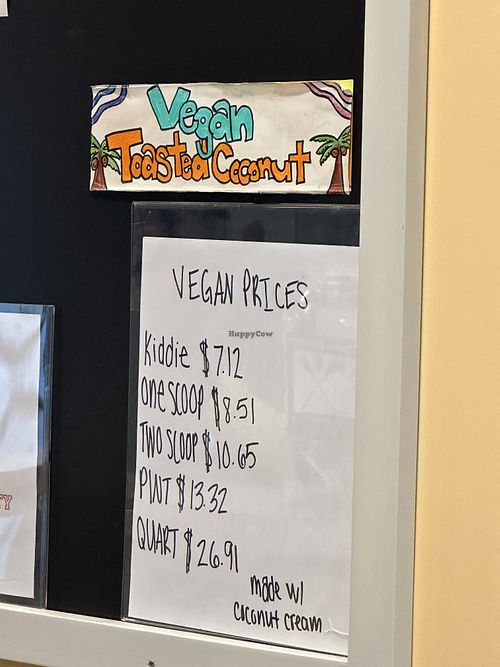 Vegan
Toasted Coconut
VEGAN PRICES
HappyCow
Kiddie $7.12
ONE SCOOP $8.51
TWO SCOOP $10.65
PINT $13.32
QUART $26.91
made w/
coconut cream
TY